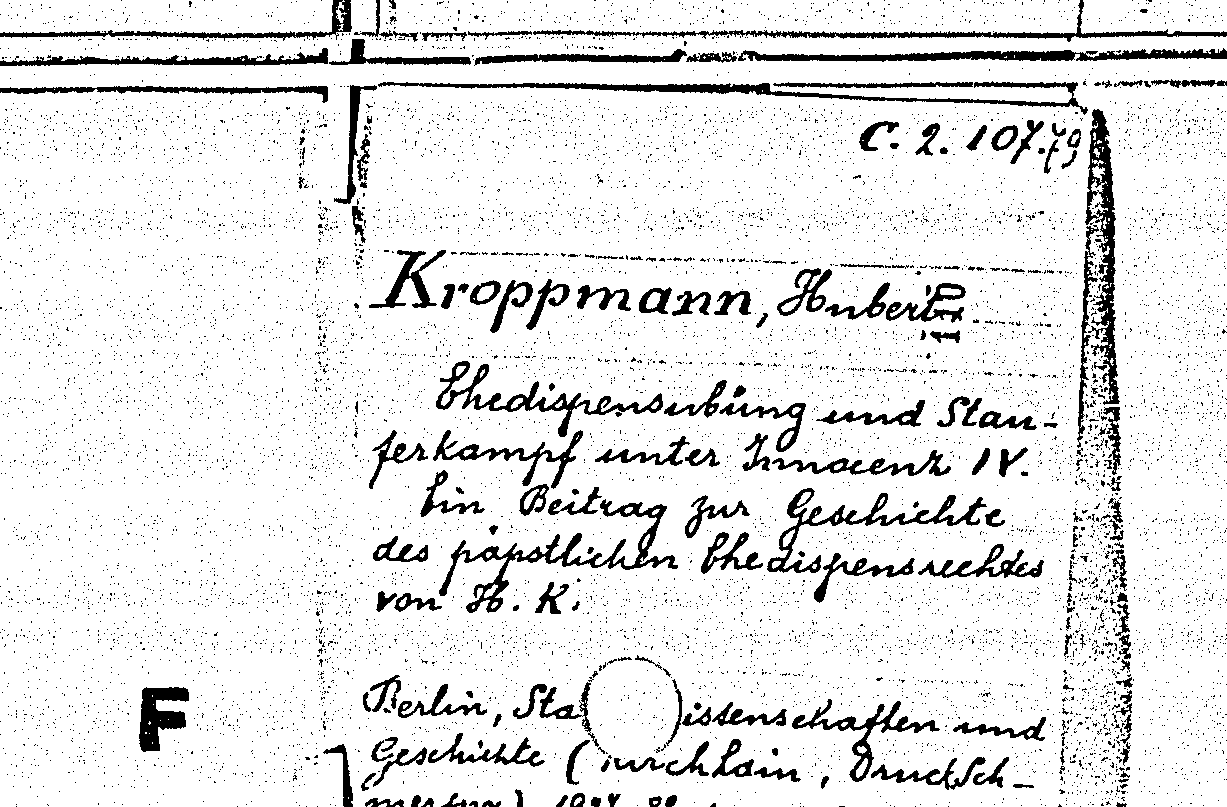 C. 2. 107.79
Kroppmann, Hubert
Ehedispensübung und Stau-
ferkampf unter Innocenz IV.
Ein Beitrag zur Geschichte
des päpstlichen Ehedispensrechtes
von H. K.
F
Berlin, Sta issenschaften und
Geschichte ( irchhain, Druck Sch-